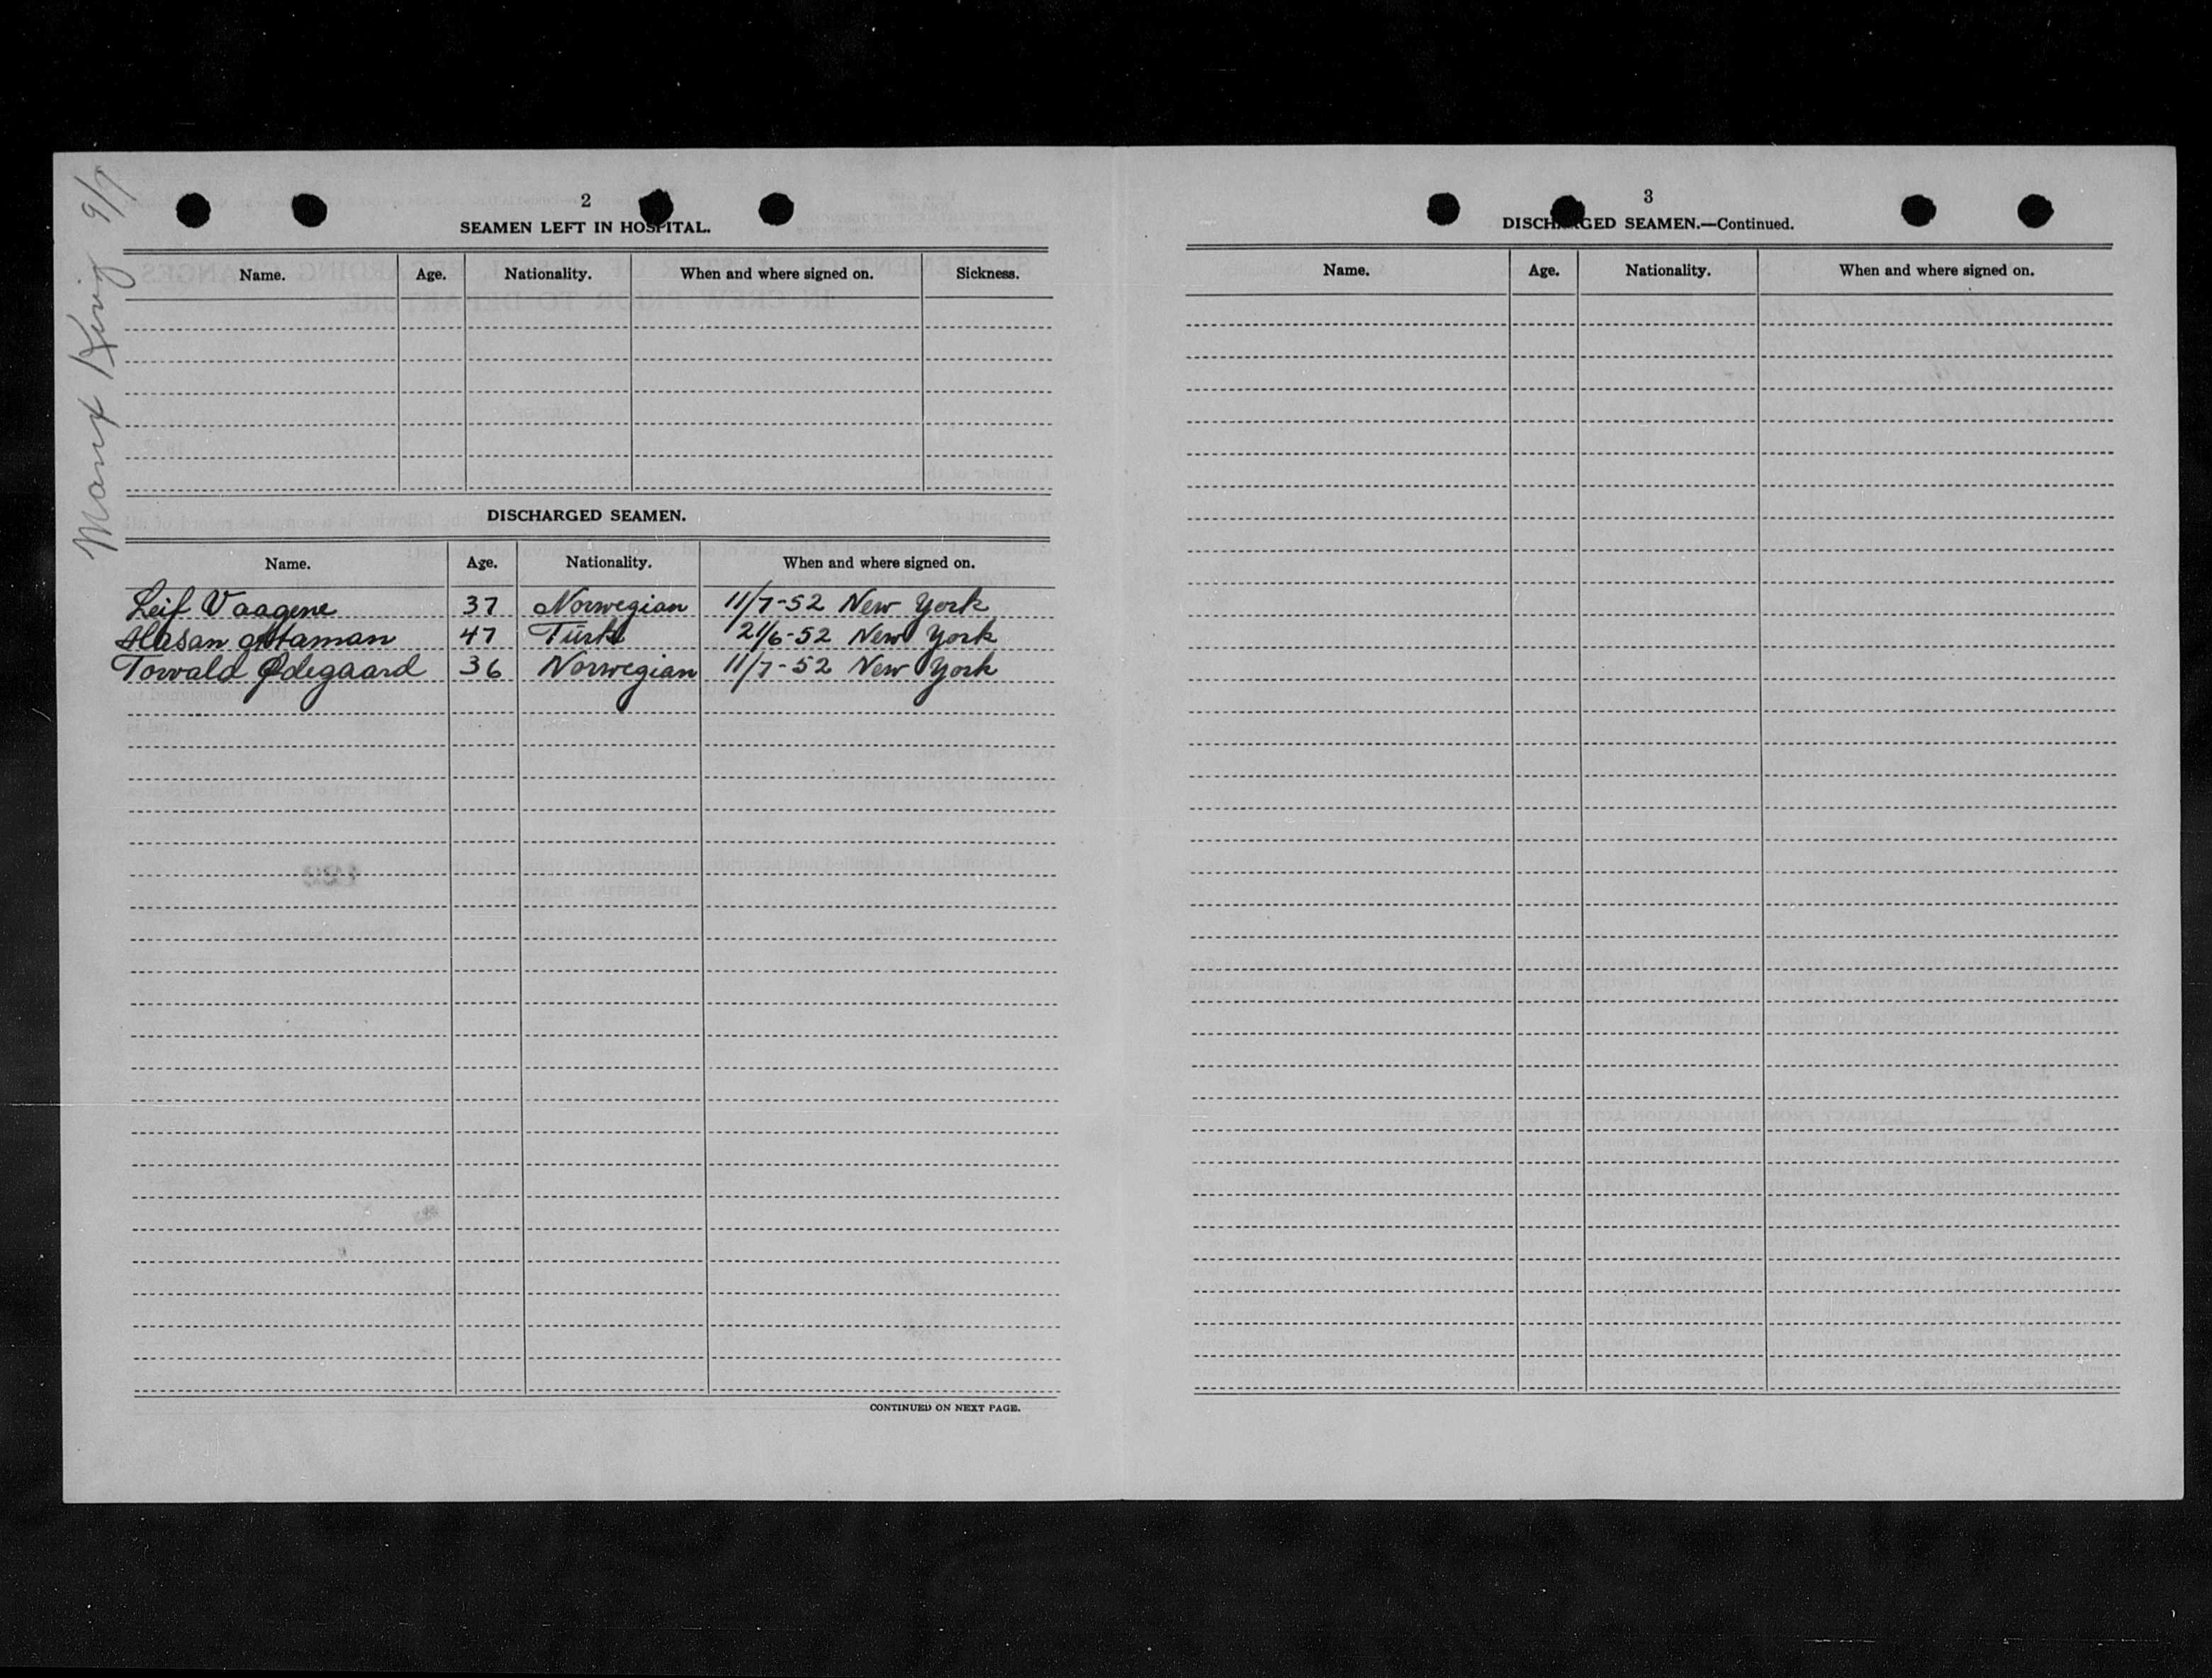 Manx King 9/7
2
SEAMEN LEFT IN HOSPITAL.
Name. Age. Nationality. When and where signed on. Sickness.
DISCHARGED SEAMEN.
Name. Age. Nationality. When and where signed on.
Leif Vaagene 37 Norwegian 11/7-52 New York
Hasan Ataman 47 Türk 21/6-52 New York
Torvald Ødegaard 36 Norwegian 11/7-52 New York
CONTINUED ON NEXT PAGE.
3
DISCHARGED SEAMEN.—Continued.
Name. Age. Nationality. When and where signed on.